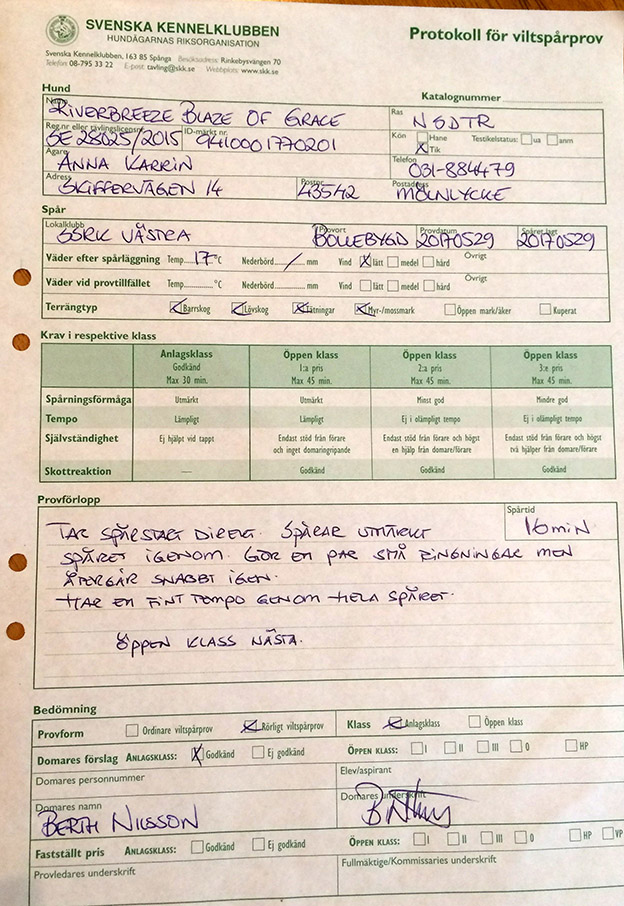 SVENSKA KENNELKLUBBEN
HUNDÄGARNAS RIKSORGANISATION
Protokoll för viltspårprov
Svenska Kennelklubben, 163 85 Spånga Besöksadress: Rinkebysvängen 70
Telefon 08-795 33 22 E-post: tavling@skk.se Webbplats: www.skk.se
Hund
Katalognummer
Namn RIVERBREEZE BLAZE OF GRACE Ras NSDTR
Reg.nr eller tävlingslicensnr SE 28025/2015 ID-märkt nr. 9410001770201 Kön Hane Testikelstatus: ua anm
X Tik
Ägare ANNA KARRIN Telefon 031-884479
Adress SKIFFERVÄGEN 14 Postnr 43542 Postadress MÖLNLYCKE
Spår
Lokalklubb SSRK VÄSTRA Provort BOLLEBYGD Provdatum 20170529 Spåret lagt 20170529
Väder efter spårläggning Temp. 17 °C Nederbörd / mm Vind X lätt medel hård Övrigt
Väder vid provtillfället Temp. °C Nederbörd mm Vind lätt medel hård Övrigt
Terrängtyp X Barrskog X Lövskog X Tätningar X Myr-/mossmark Öppen mark/åker Kuperat
Krav i respektive klass
Anlagsklass Öppen klass Öppen klass Öppen klass
Godkänd 1:a pris 2:a pris 3:e pris
Max 30 min. Max 45 min. Max 45 min. Max 45 min.
Spårningsförmåga Utmärkt Utmärkt Minst god Mindre god
Tempo Lämpligt Lämpligt Ej i olämpligt tempo Ej i olämpligt tempo
Självständighet Ej hjälpt vid tappt Endast stöd från förare Endast stöd från förare och högst Endast stöd från förare och högst
och inget domaringripande en hjälp från domare/förare två hjälper från domare/förare
Skottreaktion — Godkänd Godkänd Godkänd
Provförlopp
Spårtid 16 min
TAR SPÅRSTART DIREKT. SPÅRAR UTMÄRKT
SPÅRET IGENOM. GÖR EN PAR SMÅ RINGNINGAR MEN
ÅTERGÅR SNABBT IGEN.
HAR EN FINT TEMPO GENOM HELA SPÅRET.
ÖPPEN KLASS NÄSTA.
Bedömning
Provform Ordinare viltspårprov X Rörligt viltspårprov Klass X Anlagsklass Öppen klass
Domares förslag ANLAGSKLASS: X Godkänd Ej godkänd ÖPPEN KLASS: I II III 0 HP
Domares personnummer Elev/aspirant
Domares namn BERTH NILSSON Domares underskrift
Fastställt pris ANLAGSKLASS: Godkänd Ej godkänd ÖPPEN KLASS: I II III 0 HP VP
Provledares underskrift Fullmäktige/Kommissaries underskrift